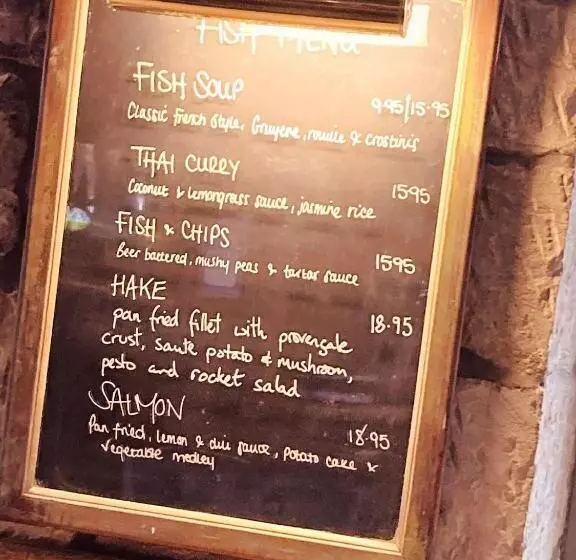 FISH MENU
FISH SOUP 9.95/15.95
Classic French Style, Gruyere, rouille & crostinis
THAI CURRY
Coconut & lemongrass sauce, jasmine rice 1595
FISH & CHIPS
Beer battered, mushy peas & tartar sauce 1595
HAKE
pan fried fillet with provençale 18.95
crust, sauté potato & mushroom,
pesto and rocket salad
SALMON
Pan fried, lemon & dill sauce, potato cake & 18.95
vegetable medley